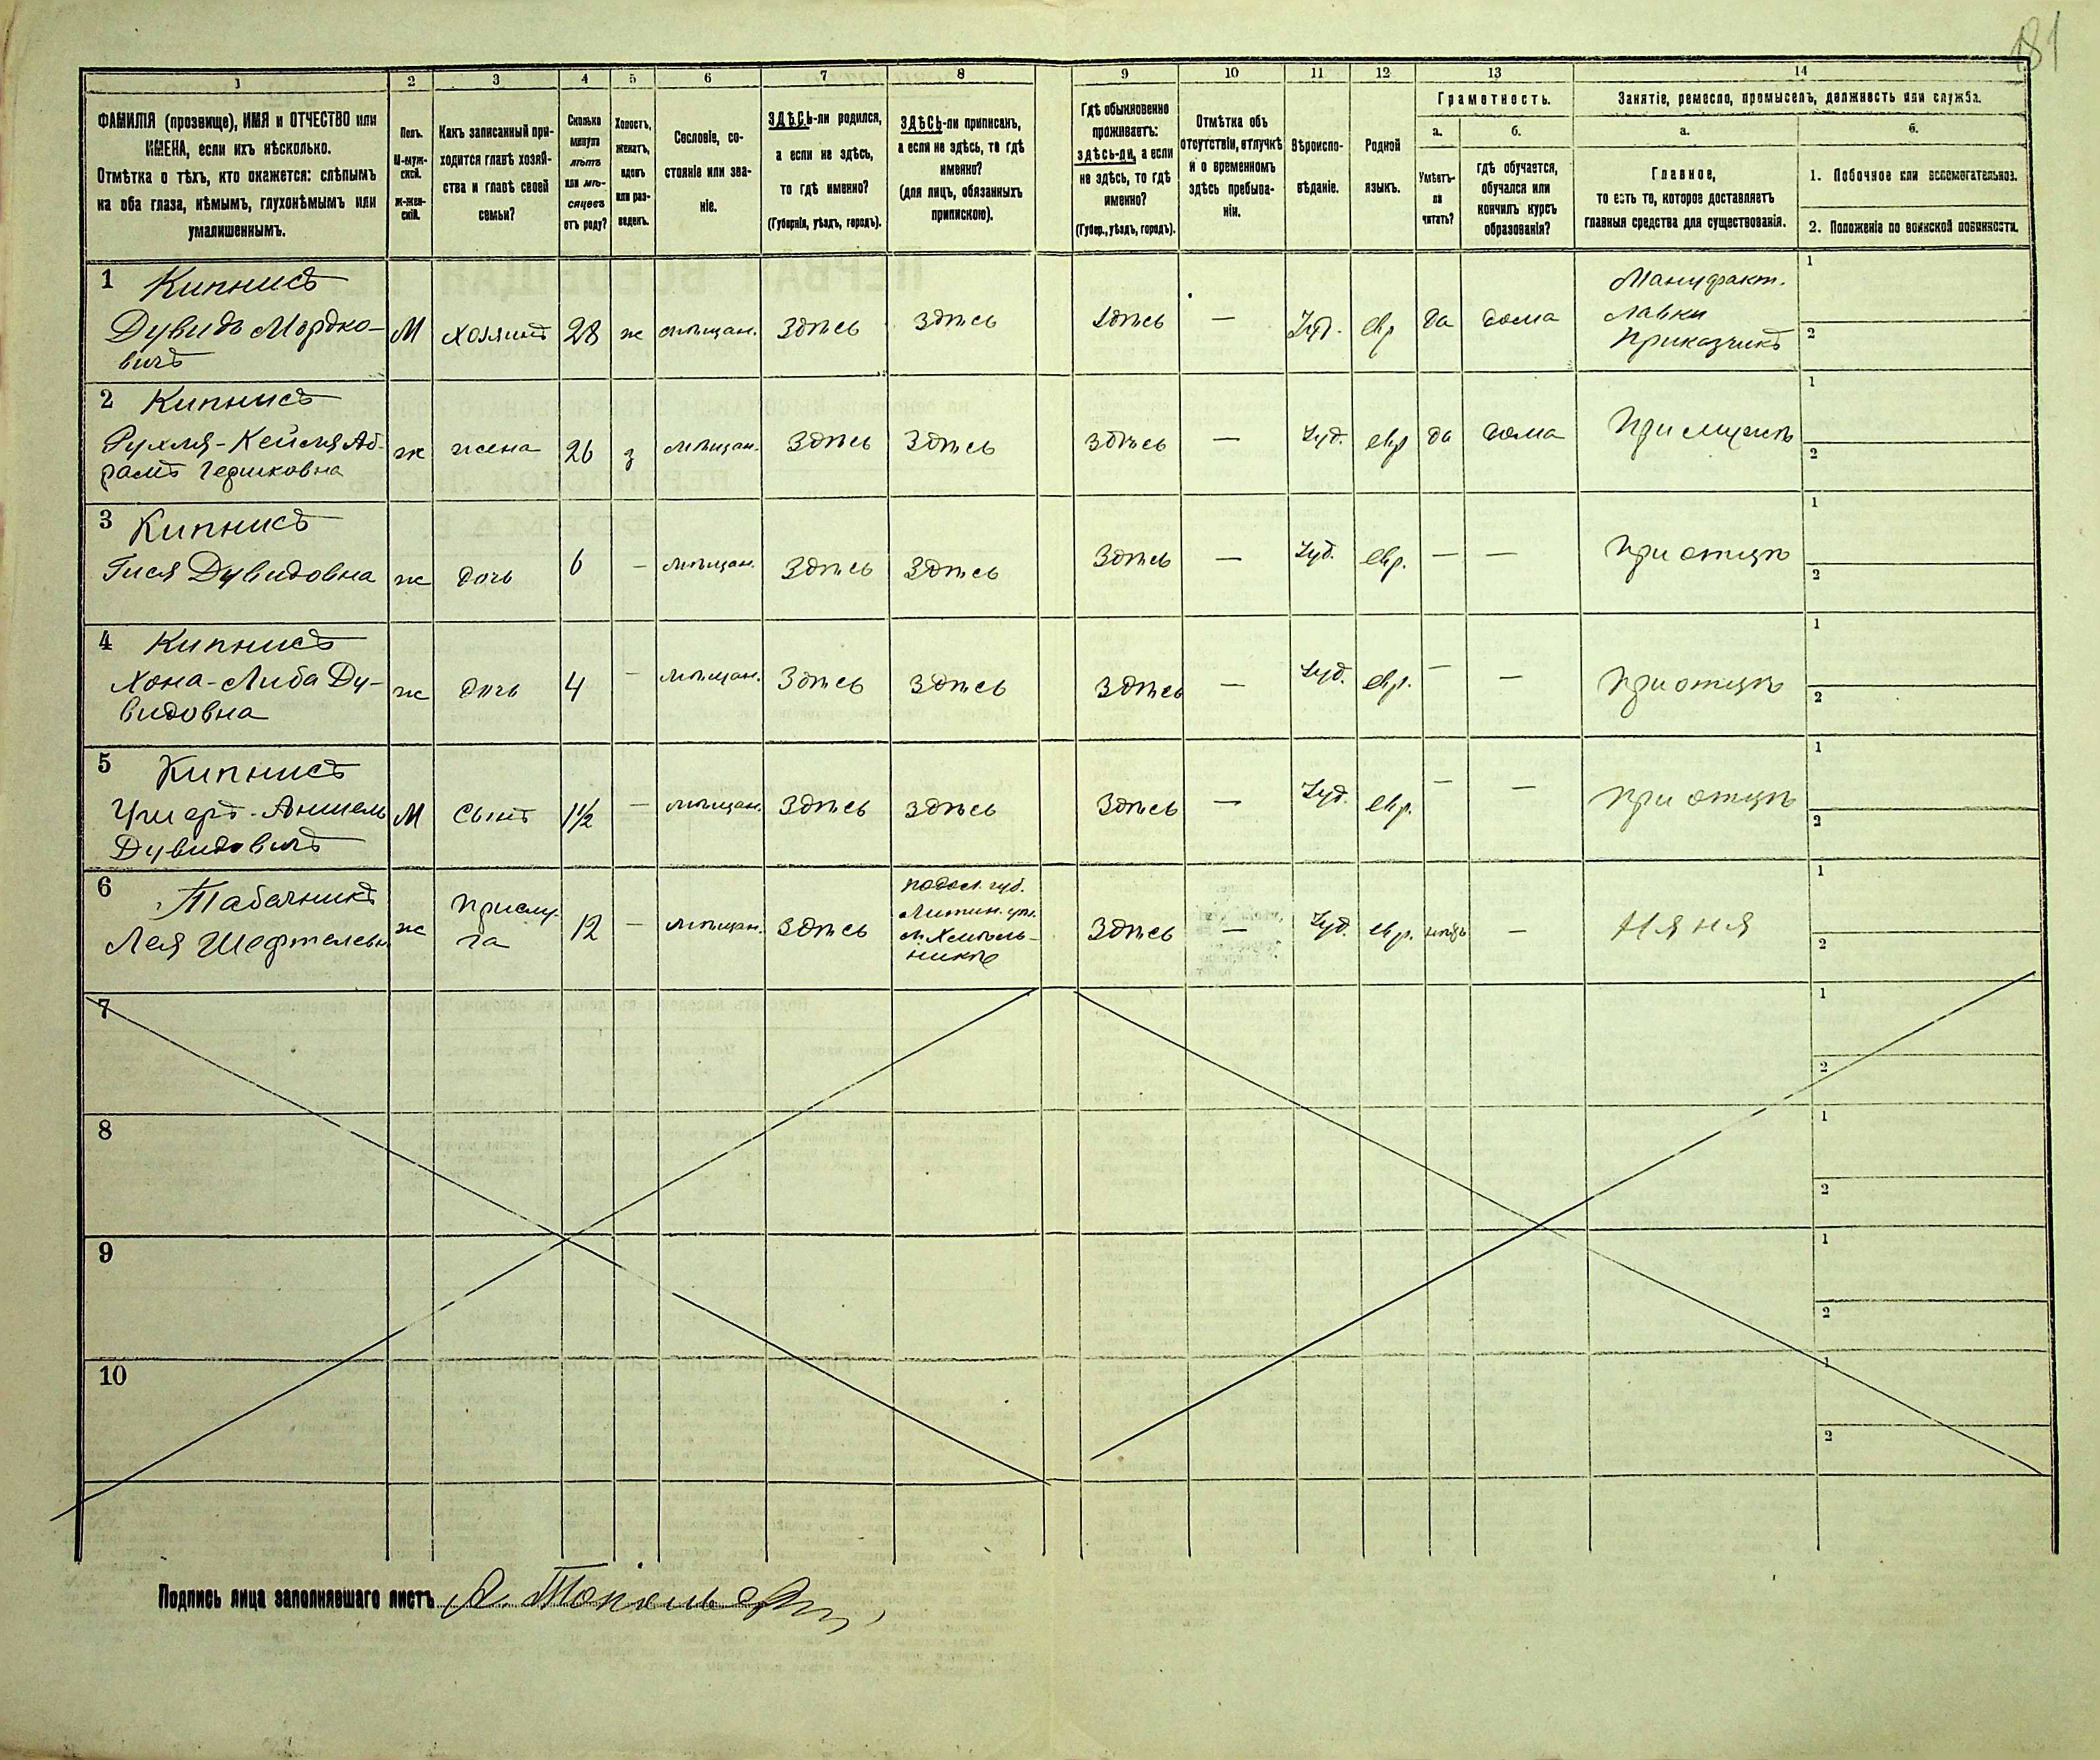 181
1 2 3 4 5 6 7 8 9 10 11 12 13 14
ФАМИЛІЯ (прозвище), ИМЯ и ОТЧЕСТВО или
ИМЕНА, если ихъ нѣсколько.
Отмѣтка о тѣхъ, кто окажется: слѣпымъ
на оба глаза, нѣмымъ, глухонѣмымъ или
умалишеннымъ.
Полъ.
М-муж-
ской.
Ж-жен-
скій.
Какъ записанный при-
ходится главѣ хозяй-
ства и главѣ своей
семьи?
Сколько
минуло
лѣтъ
или мѣ-
сяцевъ
отъ роду?
Холостъ,
женатъ,
вдовъ
или раз-
веденъ.
Сословіе, со-
стояніе или зва-
ніе.
ЗДѢСЬ-ли родился,
а если не здѣсь,
то гдѣ именно?
(Губернія, уѣздъ, городъ).
ЗДѢСЬ-ли приписанъ,
а если не здѣсь, то гдѣ
именно?
(для лицъ, обязанныхъ
припискою).
Гдѣ обыкновенно
проживаетъ:
здѣсь-ли, а если
не здѣсь, то гдѣ
именно?
(Губер., уѣздъ, городъ).
Отмѣтка объ
отсутствіи, отлучкѣ
и о временномъ
здѣсь пребыва-
ніи.
Вѣроиспо-
вѣданіе.
Родной
языкъ.
Грамотность.
а.
Умѣетъ-
ли
читать?
б.
гдѣ обучается,
обучался или
кончилъ курсъ
образованія?
Занятіе, ремесло, промыселъ, должность или служба.
а.
Главное,
то есть то, которое доставляетъ
главныя средства для существованія.
б.
1. Побочное или вспомогательное.
2. Положеніе по воинской повинности.
1 Кипнисъ
Дувидъ Мордко-
вичъ
М хозяинъ 28 ж мѣщан. Здѣсь Здѣсь Здѣсь — Іуд. евр да дома
Мануфакт.
лавки
Приказчикъ
1
2
2 Кипнисъ
Рухля-Кейля Аб-
рамъ Гершковна
ж жена 26 з мѣщан. Здѣсь Здѣсь Здѣсь — Іуд. евр да дома При мужѣ
1
2
3 Кипнисъ
Гися Дувидовна
ж дочь 6 — мѣщан. Здѣсь Здѣсь Здѣсь — Іуд. евр. — — При отцѣ
1
2
4 Кипнисъ
Хона-Либа Ду-
видовна
ж дочь 4 — мѣщан. Здѣсь Здѣсь Здѣсь — Іуд. евр. — — При отцѣ
1
2
5 Кипнисъ
Ушеръ-Аншель
Дувидовичъ
М сынъ 1½ — мѣщан. Здѣсь Здѣсь Здѣсь — Іуд. евр. — — При отцѣ
1
2
6 Табачникъ
Лея Шефтелевн
ж
прислу-
га
12 — мѣщан. Здѣсь
Подол. губ.
Литин. уѣз.
м. Хмѣль-
никѣ
Здѣсь — Іуд. евр. нѣтъ — Няня
1
2
7
1
2
8
1
2
9
1
2
10
1
2
Подпись лица заполнявшаго листъ